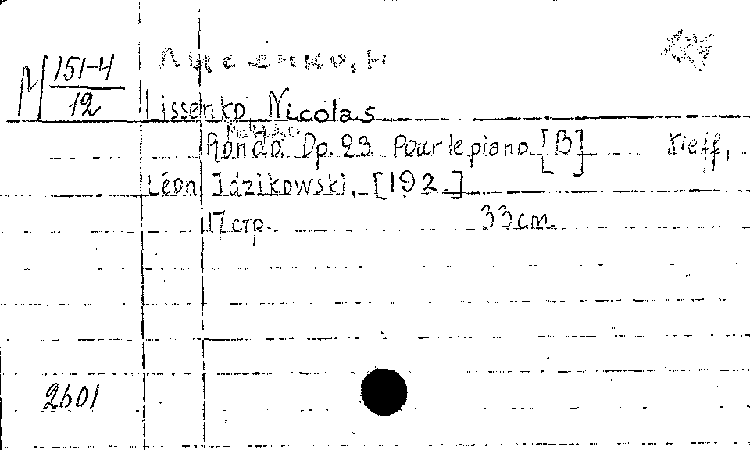 М 151-4
12
Лисенко, Н
Lissenko Nicolas
Rondo Op. 23 Pour le piano [B] Kieff,
Léon Idzikowski, [192.]
17 стр. 33 cm
2601